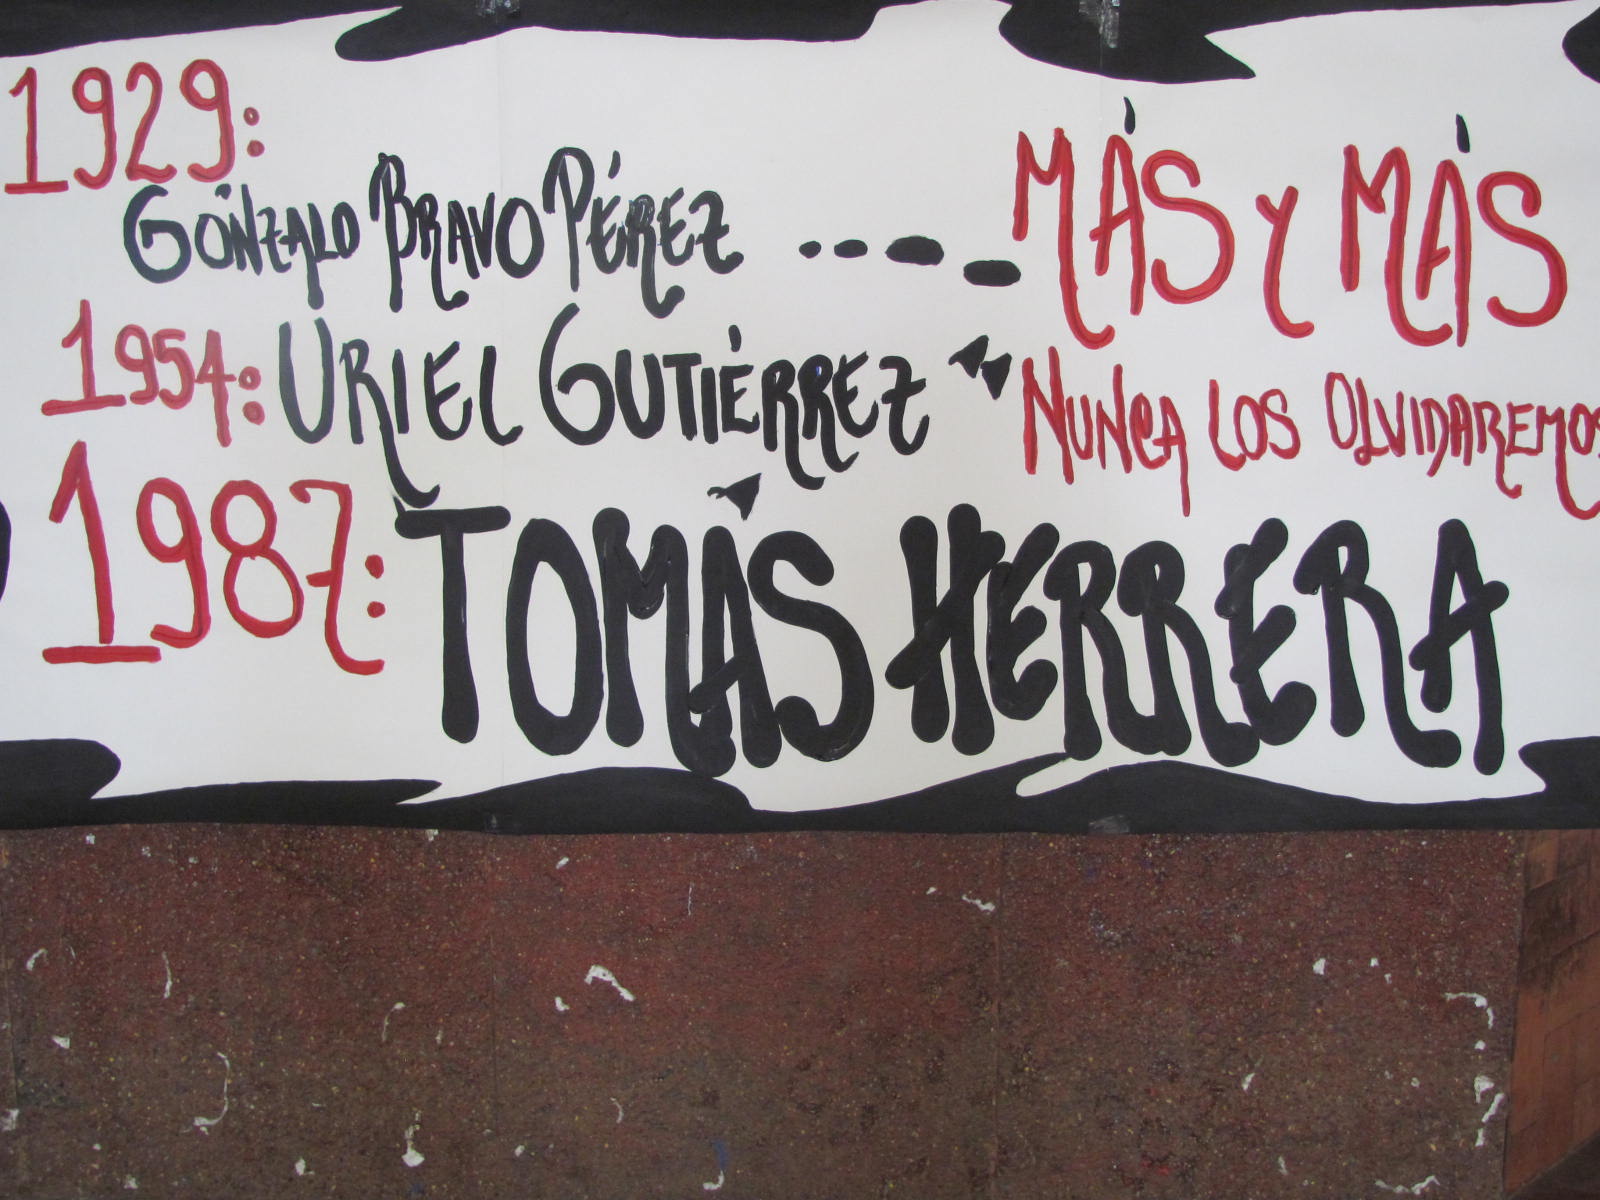 1929:
GONZALO BRAVO PÉREZ
MÁS Y MÁS
1954: URIEL GUTIÉRREZ
NUNCA LOS OLVIDAREMOS
1987: TOMÁS HERRERA